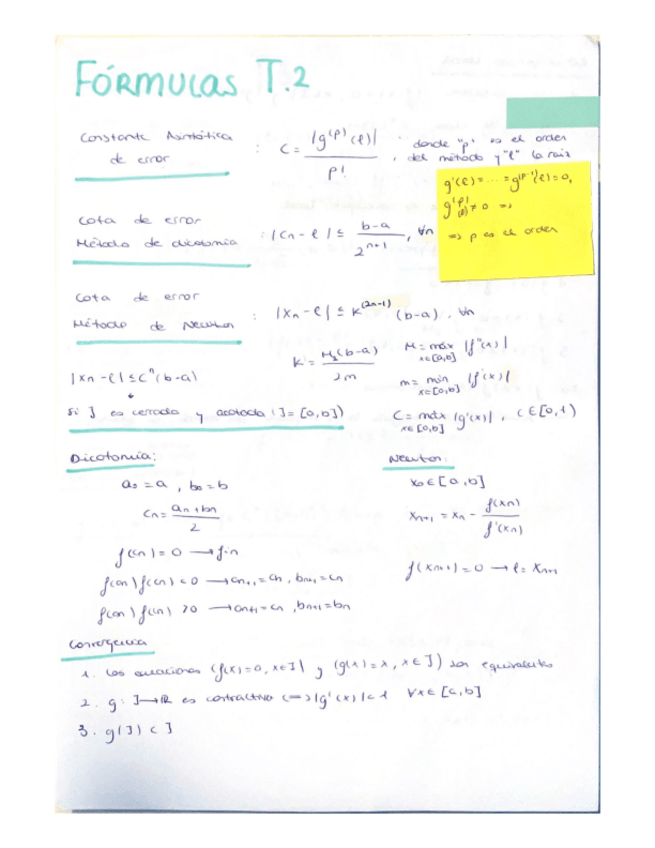 FÓRMULAS T.2
Constante Asintótica de error : C = |g^(p)(ℓ)| / p! , donde "p" es el orden del método y "ℓ" la raiz
g'(ℓ) = ... = g^(p-1)(ℓ) = 0,
g^(p)(ℓ) ≠ 0 =>
=> p es el orden
Cota de error
Método de dicotomía : |Cn - ℓ| ≤ (b-a) / 2^(n+1) , ∀n
Cota de error
Método de Newton : |Xn - ℓ| ≤ K^(2n-1) (b-a) , ∀n
K = M(b-a) / 2m
M = máx |f''(x)|
x∈[a,b]
m = mín |f'(x)|
x∈[a,b]
|Xn - ℓ| ≤ C^n (b-a)
Si J es cerrado y acotado (J = [a,b])
C = máx |g'(x)| , C ∈ [0,1)
x∈[a,b]
Dicotomía:
a₀ = a , b₀ = b
Cn = (an + bn) / 2
f(cn) = 0 → fin
f(an) f(cn) < 0 → an+1 = an , bn+1 = cn
f(an) f(cn) > 0 → an+1 = cn , bn+1 = bn
Newton:
x₀ ∈ [a,b]
Xn+1 = Xn - f(Xn) / f'(Xn)
f(Xn+1) = 0 → ℓ = Xn+1
Convergencia
1. Las ecuaciones (f(x) = 0, x∈J) y (g(x) = x, x∈J) son equivalentes
2. g: J → ℝ es contractiva <=> |g'(x)| < 1 ∀x ∈ [a,b]
3. g(J) ⊂ J